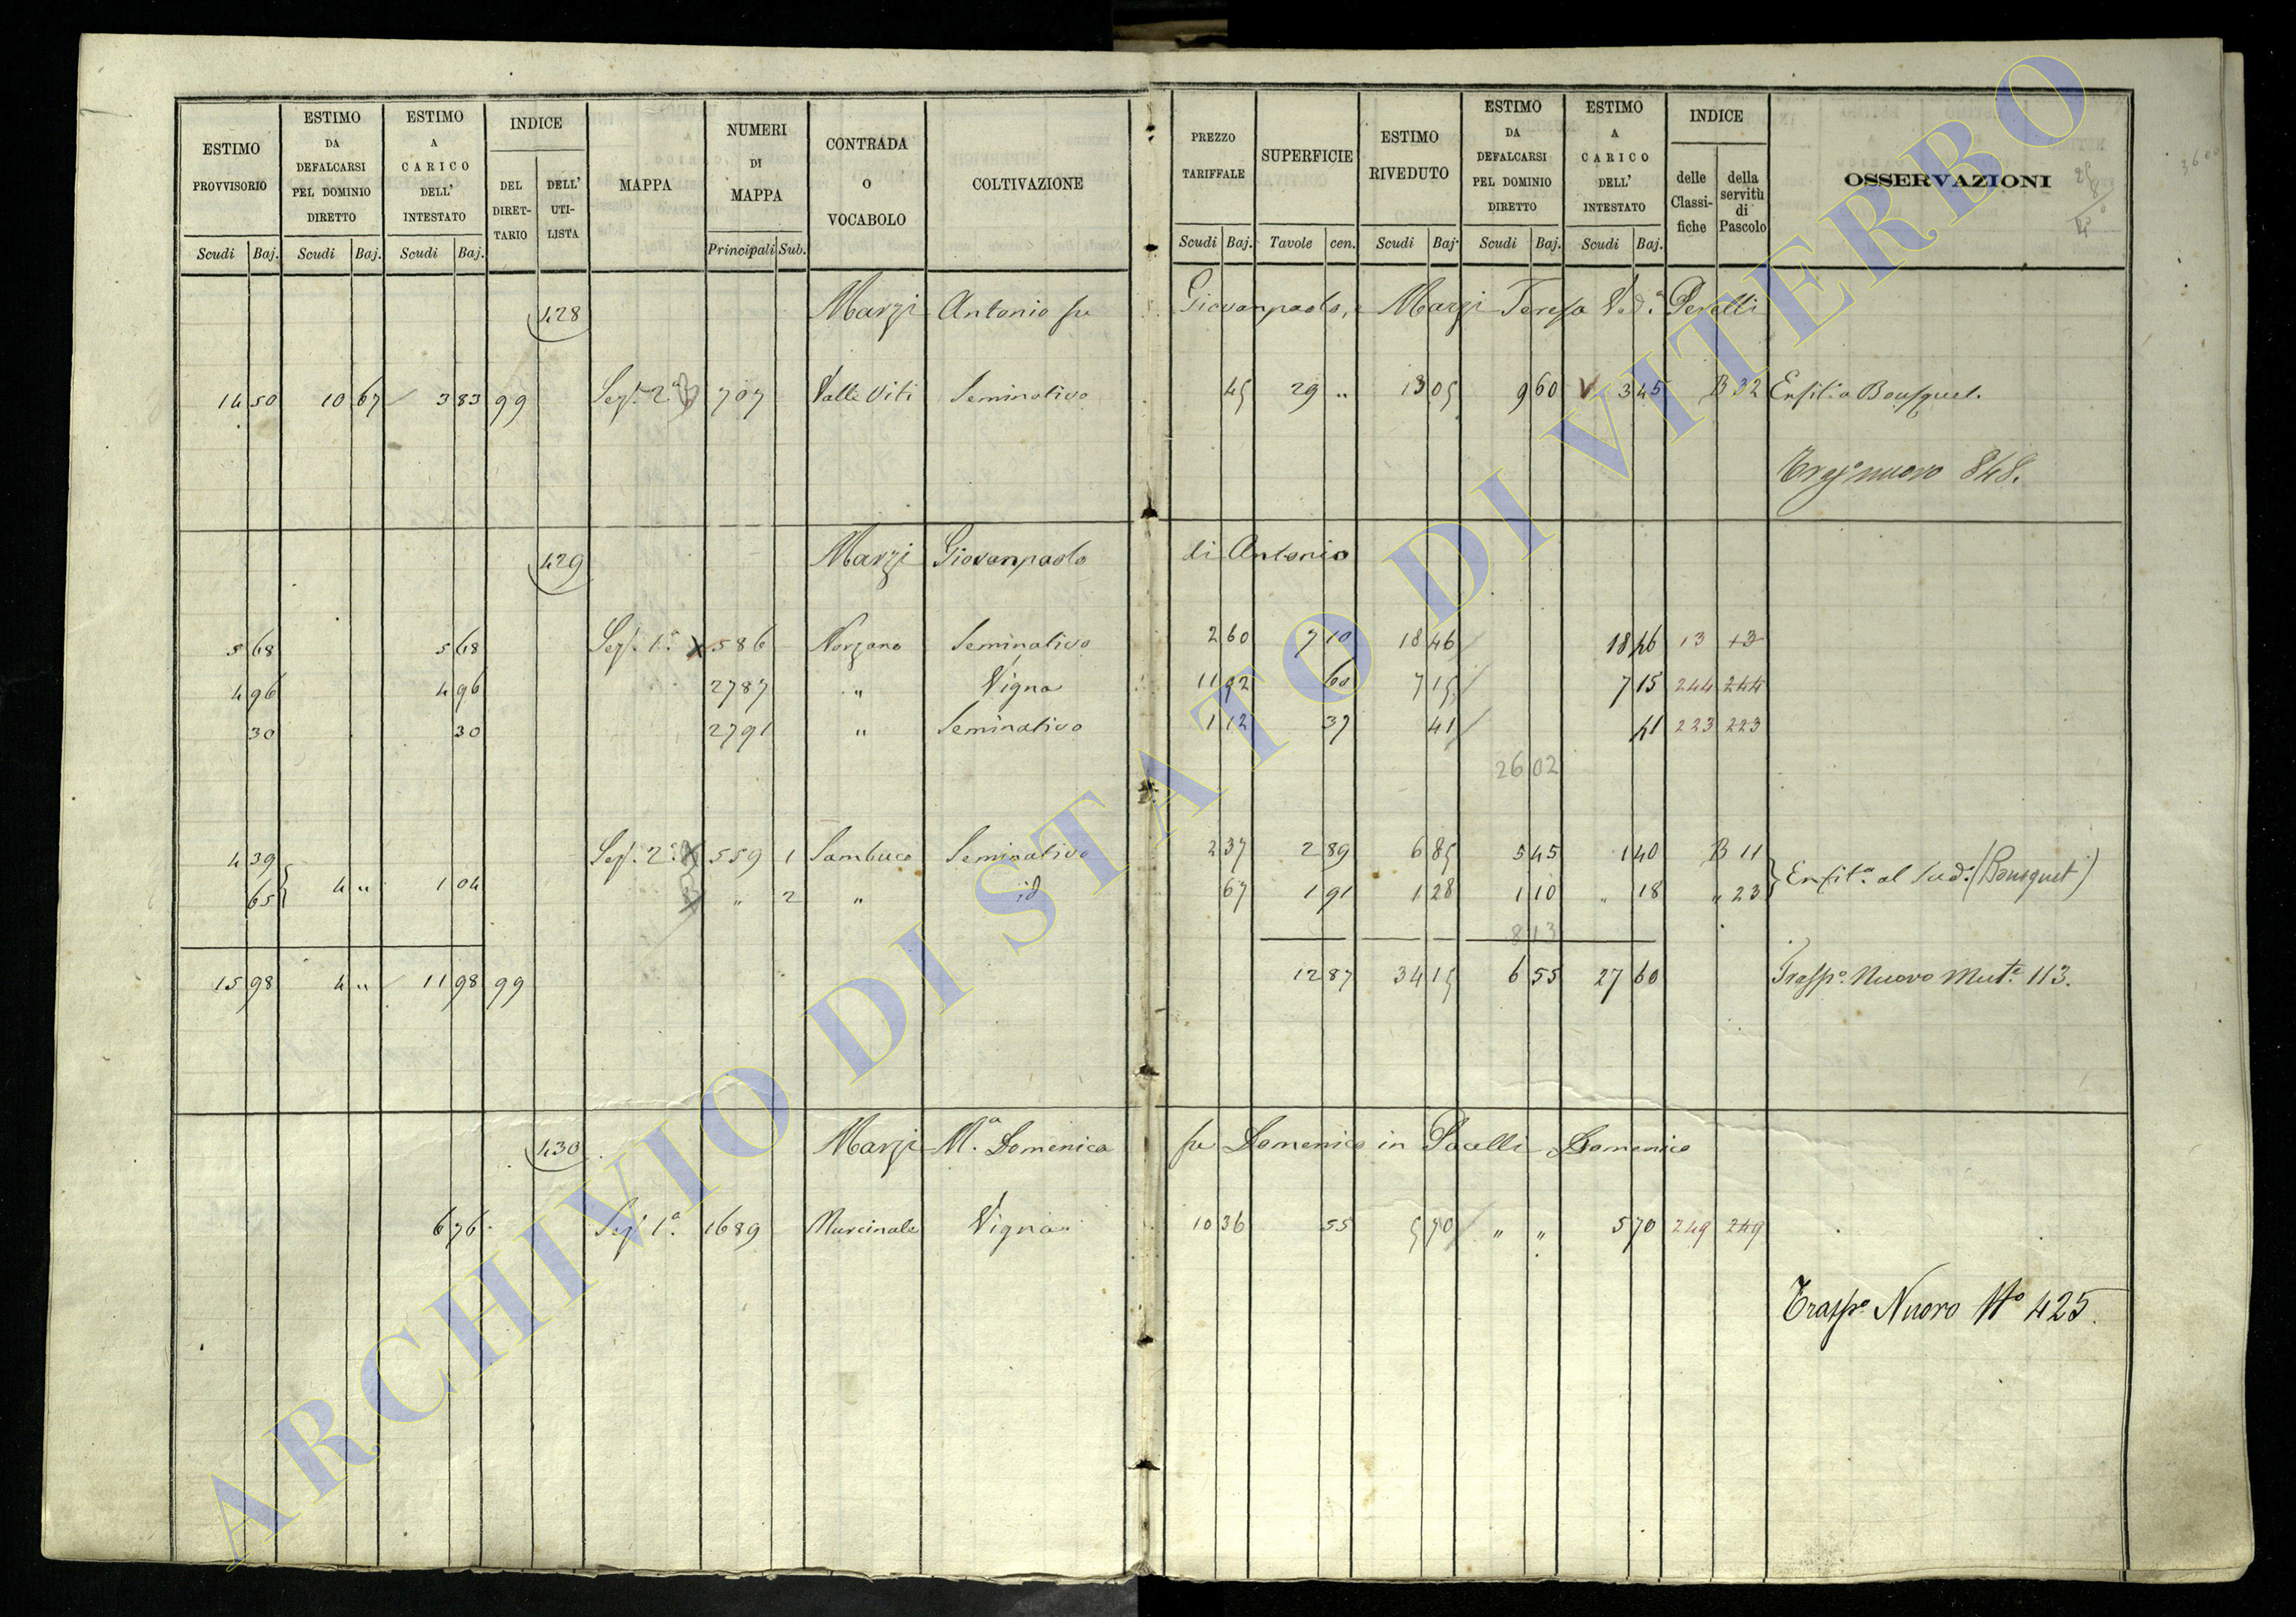 ESTIMO PROVVISORIO Scudi Baj. ESTIMO DA DEFALCARSI PEL DOMINIO DIRETTO Scudi Baj. ESTIMO A CARICO DELL' INTESTATO Scudi Baj. INDICE DEL DIRET-TARIO DELL' UTI-LISTA MAPPA NUMERI DI MAPPA Principali Sub. CONTRADA O VOCABOLO COLTIVAZIONE PREZZO TARIFFALE Scudi Baj. SUPERFICIE Tavole cen. ESTIMO RIVEDUTO Scudi Baj. ESTIMO DA DEFALCARSI PEL DOMINIO DIRETTO Scudi Baj. ESTIMO A CARICO DELL' INTESTATO Scudi Baj. INDICE delle Classi-fiche della servitù di Pascolo OSSERVAZIONI
428 Marzi Antonio fu Giovanpaolo, e Marzi Teresa Ved.a
14 50 10 67 3 83 99 Sez. 2a 707 Valle Viti Seminativo 45 29 " 13 05 9 60 3 45 B 32 Enfit. a Bousquet.
nuovo 848.
429 Marzi Giovanpaolo di Antonio
5 68 5 68 Sez. 1a 586 Norzano Seminativo 2 60 7 10 18 46 18 46 13 13
4 96 4 96 2787 " Vigna 11 92 60 7 15 7 15 244 244
30 30 2791 " Seminativo 1 12 37 41 41 223 223
26 02
4 39 Sez. 2a 559 1 Sambuco Seminativo 2 37 2 89 6 85 5 45 1 40 B 11
65 4 " 1 04 " 2 " id 67 1 91 1 28 1 10 " 18 " 23 Enfit.a al Sud.o (Bousquet)
8 13
15 98 4 " 11 98 99 12 87 34 15 6 55 27 60 Trasp.o Nuovo Mut.e 113.
430 Marzi M.a Domenica fu Domenico in Pacelli Domenico
6 76 Sez. 1a 1689 Murcinale Vigna 10 36 55 5 70 " " 5 70 249 249
Trasp.o Nuovo No 425.
ARCHIVIO DI STATO DI VITERBO